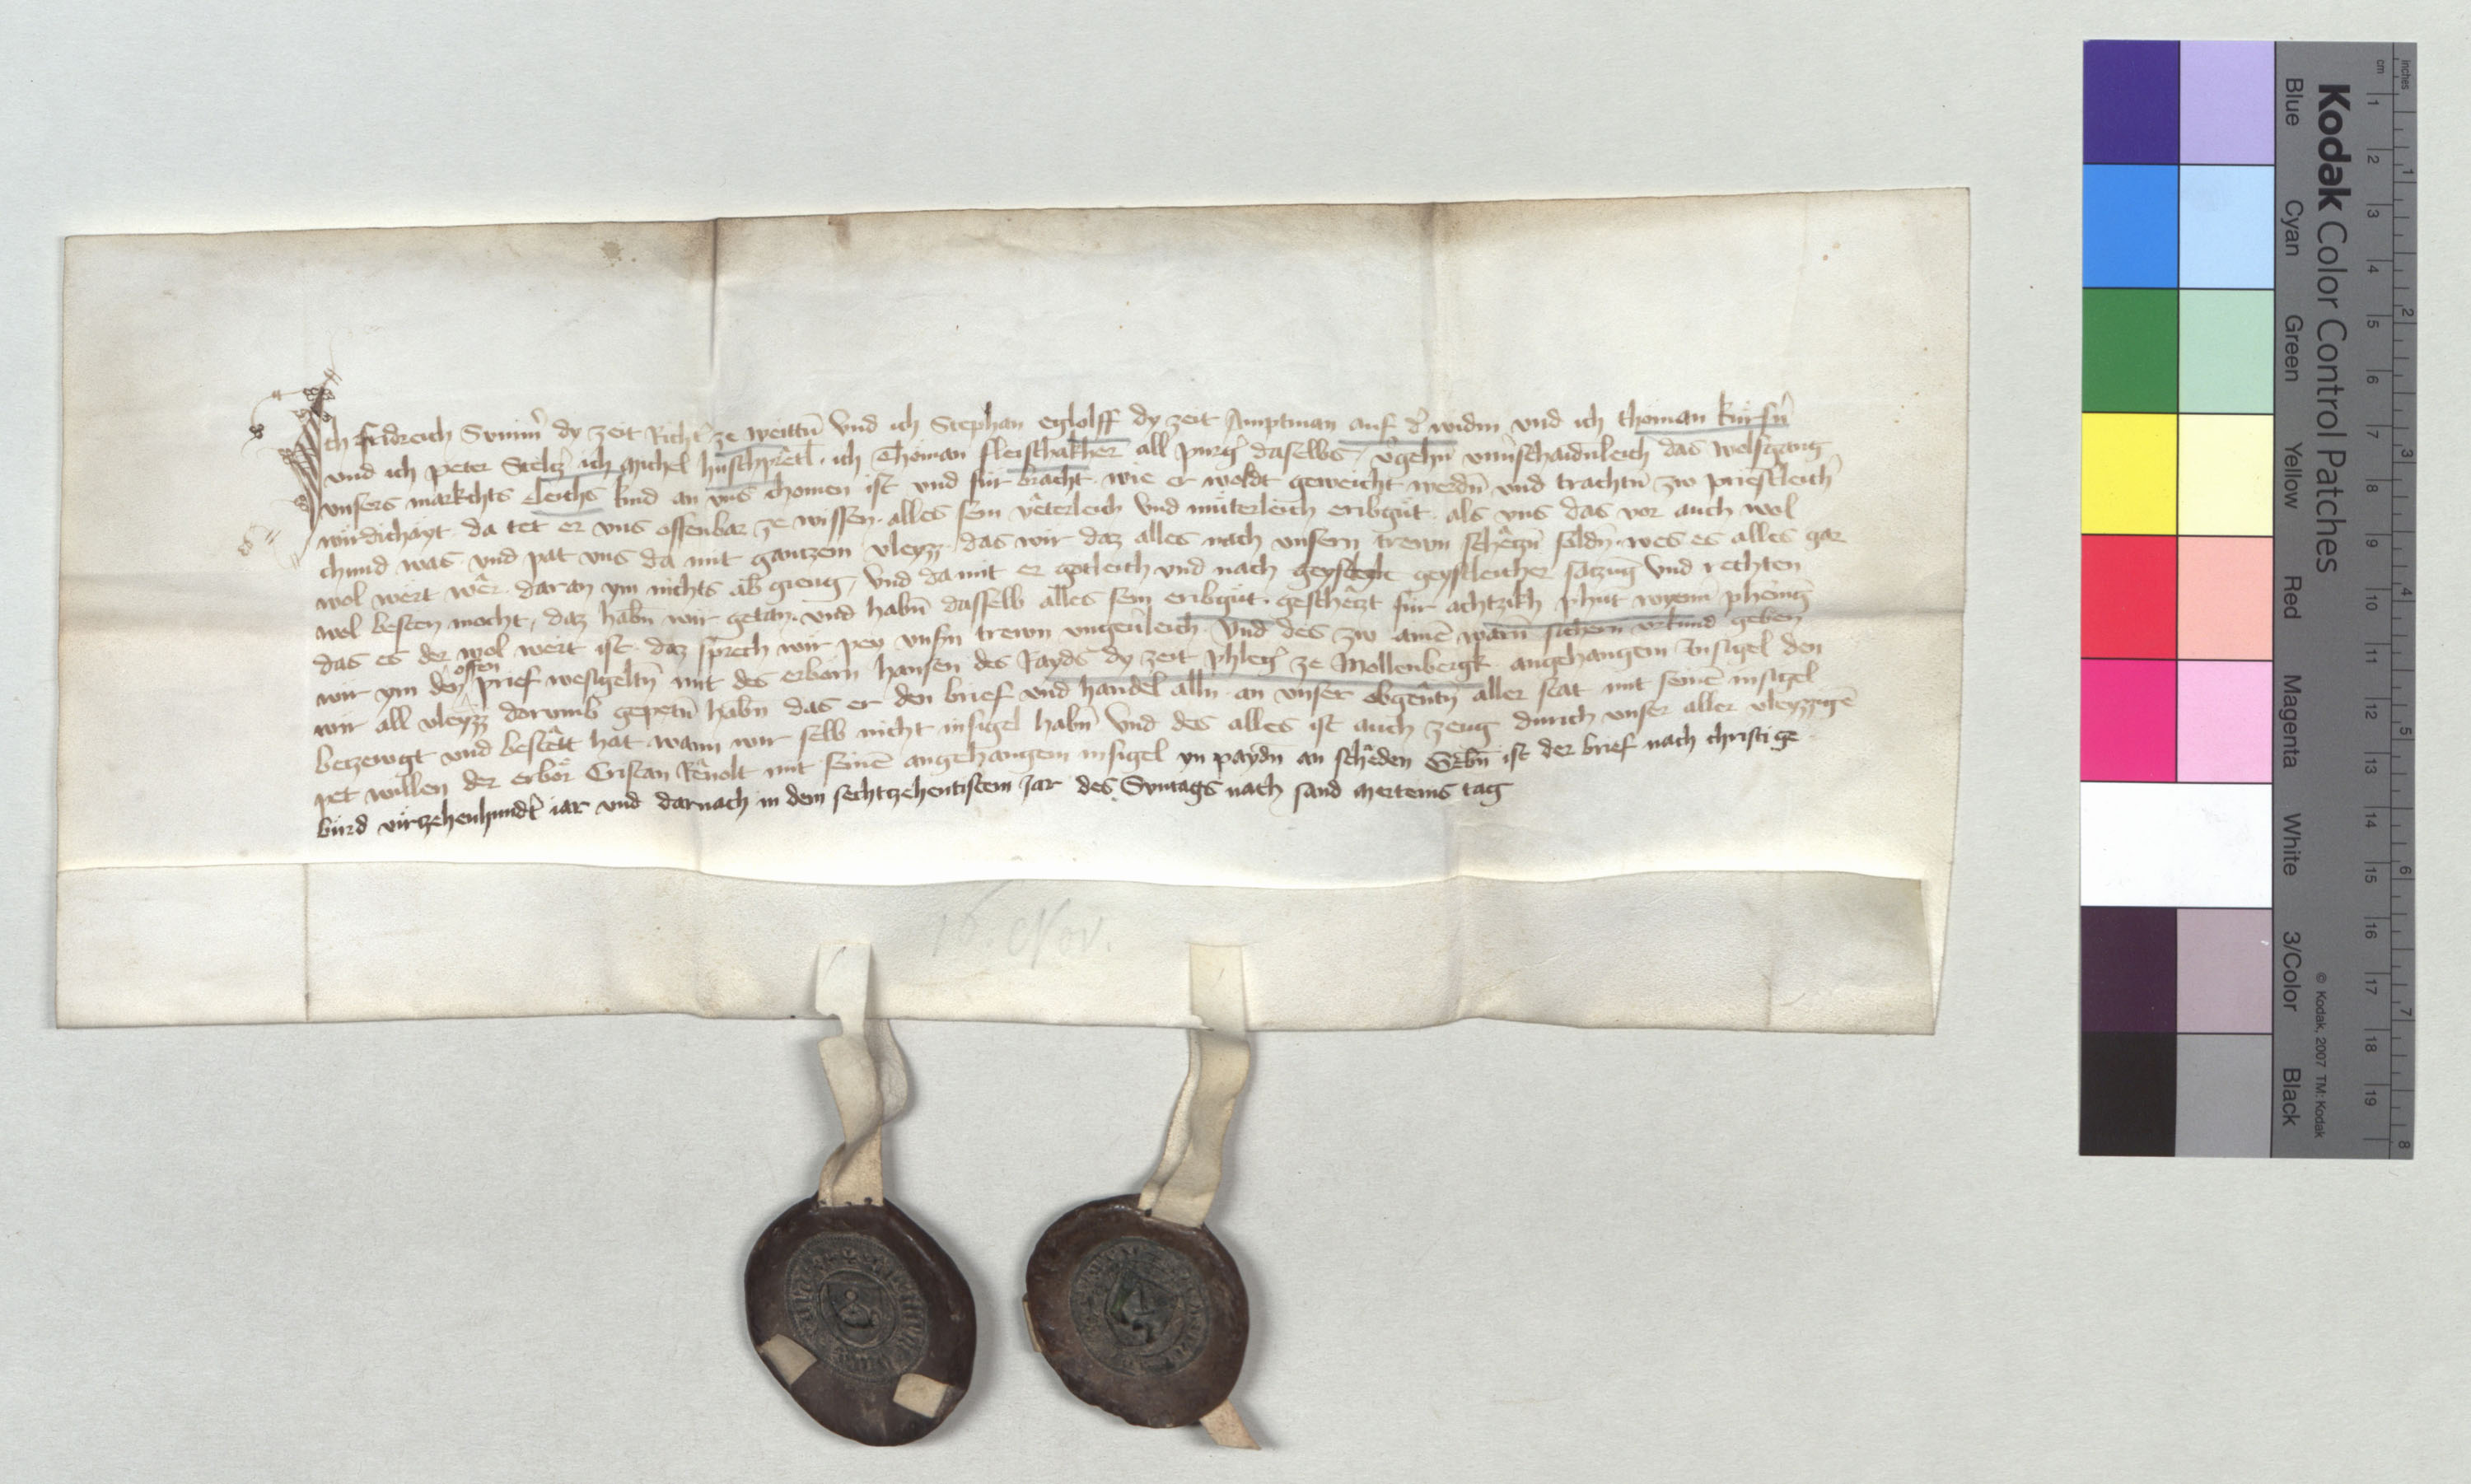 Ich fridreich Summˀ dy zeit Richtˀ ze weittn̄ Und ich Stephan eglolff dy zeit Amptman auf dˀ widm und ich thoman kürsnˀ
und ich peter Steltzˀ ich Michel huschprêtl · ich Thoman fleischakher all purgˀ daselbs / vˀgehn̄ unuˀschaidnleich das wolfgang
unsers markchts leichs kind an uns chomen ist und für bracht wie er woldt geweicht werdn̄ und trachtn̄ zw priestleichˀ
wirdichayt da tet er uns offenbar ze wissen · alles sein vêterleich Und müterleich eribgüt · als uns das vor auch wol
chund was · und pat uns da mit gantzem vleyzz das wir daz alles nach unsern trewn schêtzn̄ soldn̄ wes es alles gar
wol wert wêr · daran ym nichts ab gieng / Und da mit er gotleich und nach geystleich geystleicher satzuḡ Und rechten
wol besten mocht / daz habn̄ wir getan · und habn̄ dasselb alles sein eribgüt · geschêtzt für achtzikh phūt wyenn̄ phenīg
das es der wol wert ist · daz sprech wir pey unsn̄ trewn ungeuˀleich · Und des zw ainē warn̄ sichern urkund geben
wir ym den offen prief uesigeltn̄ mit des erbern hansen des Rayds dy zeit phlegˀ ze Mollenbergk angehangem Insigel den
wir all vleyzz dorumb gepetn̄ habn das er den brief und handel alln an unser obgen̄tn̄ aller stat mit seinē insigel
betzewgt und bestêtt hat wann wir selb nicht insigel habn̄ Und des alles ist auch zeug durich unser aller vleyzzigē
pet willen der erbör Cristan Rênolt mit seinē angehangem insigel yn paydn̄ an schêden Gebn̄ ist der brief nach christi ge
burd virtzehenhundtˀ iar und darnach in dem sechtzehentistem Jar des Suntags nach sand Merteins tag
16. Nov.
Kodak Color Control Patches
© Kodak, 2007 TM: Kodak
Blue Cyan Green Yellow Red Magenta White 3/Color Black
inches 1 2 3 4 5 6 7 8
cm 1 2 3 4 5 6 7 8 9 10 11 12 13 14 15 16 17 18 19